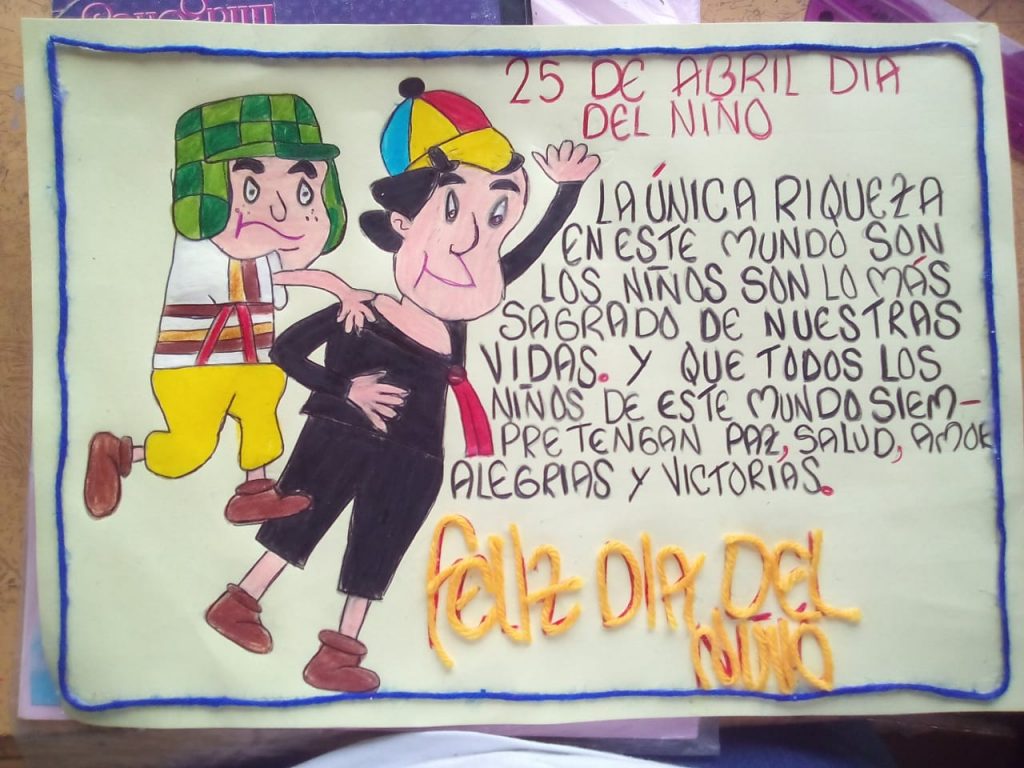 25 DE ABRIL DIA
DEL NIÑO
LA ÚNICA RIQUEZA
EN ESTE MUNDO SON
LOS NIÑOS SON LO MÁS
SAGRADO DE NUESTRAS
VIDAS. Y QUE TODOS LOS
NIÑOS DE ESTE MUNDO SIEM-
PRE TENGAN PAZ, SALUD, AMOR
ALEGRIAS Y VICTORIAS.
FELIZ DIA DEL
NIÑO